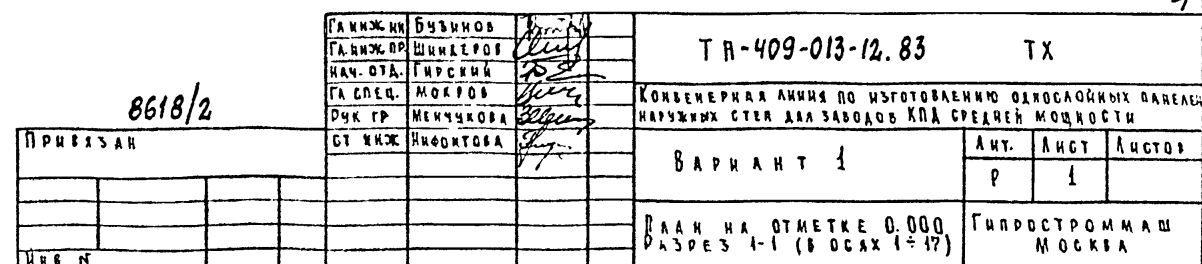 ГЛ ИНЖ ИН БУЗИНОВ
ГЛ. ИНЖ. ПР. ШИНДЕРОВ
НАЧ. ОТД. ГИРСКИЙ
ГЛ СПЕЦ. МОКРОВ
РУК ГР МЕНЧУКОВА
СТ ИНЖ НИФОНТОВА
ТП-409-013-12.83 ТХ
КОНВЕЙЕРНАЯ ЛИНИЯ ПО ИЗГОТОВЛЕНИЮ ОДНОСЛОЙНЫХ ПАНЕЛЕЙ
НАРУЖНЫХ СТЕН ДЛЯ ЗАВОДОВ КПД СРЕДНЕЙ МОЩНОСТИ
8618/2
ПРИВЯЗАН
ВАРИАНТ 1
ЛИТ. ЛИСТ ЛИСТОВ
Р 1
ПЛАН НА ОТМЕТКЕ 0.000
РАЗРЕЗ 1-1 (В ОСЯХ 1÷17)
ГИПРОСТРОММАШ
МОСКВА
ИНВ N